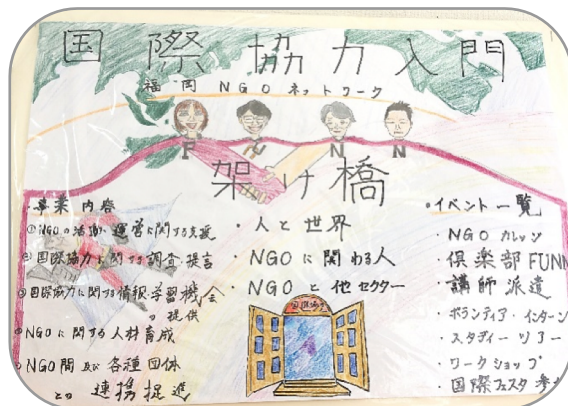 国際協力入門
福岡NGOネットワーク
F U N N
架け橋
事業内容
①NGOの活動・運営に関する支援
②国際協力に関する調査・提言
③国際協力に関する情報・学習機会
の提供
④NGOに関する人材育成
⑤NGO間及び各種団体
との連携促進
・人と世界
・NGOに関わる人
・NGOと他セクター
・イベント一覧
・NGOカレッジ
・倶楽部FUNN
・講師派遣
・ボランティア・インターン
・スタディーツアー
・ワークショップ
・国際フェスタ